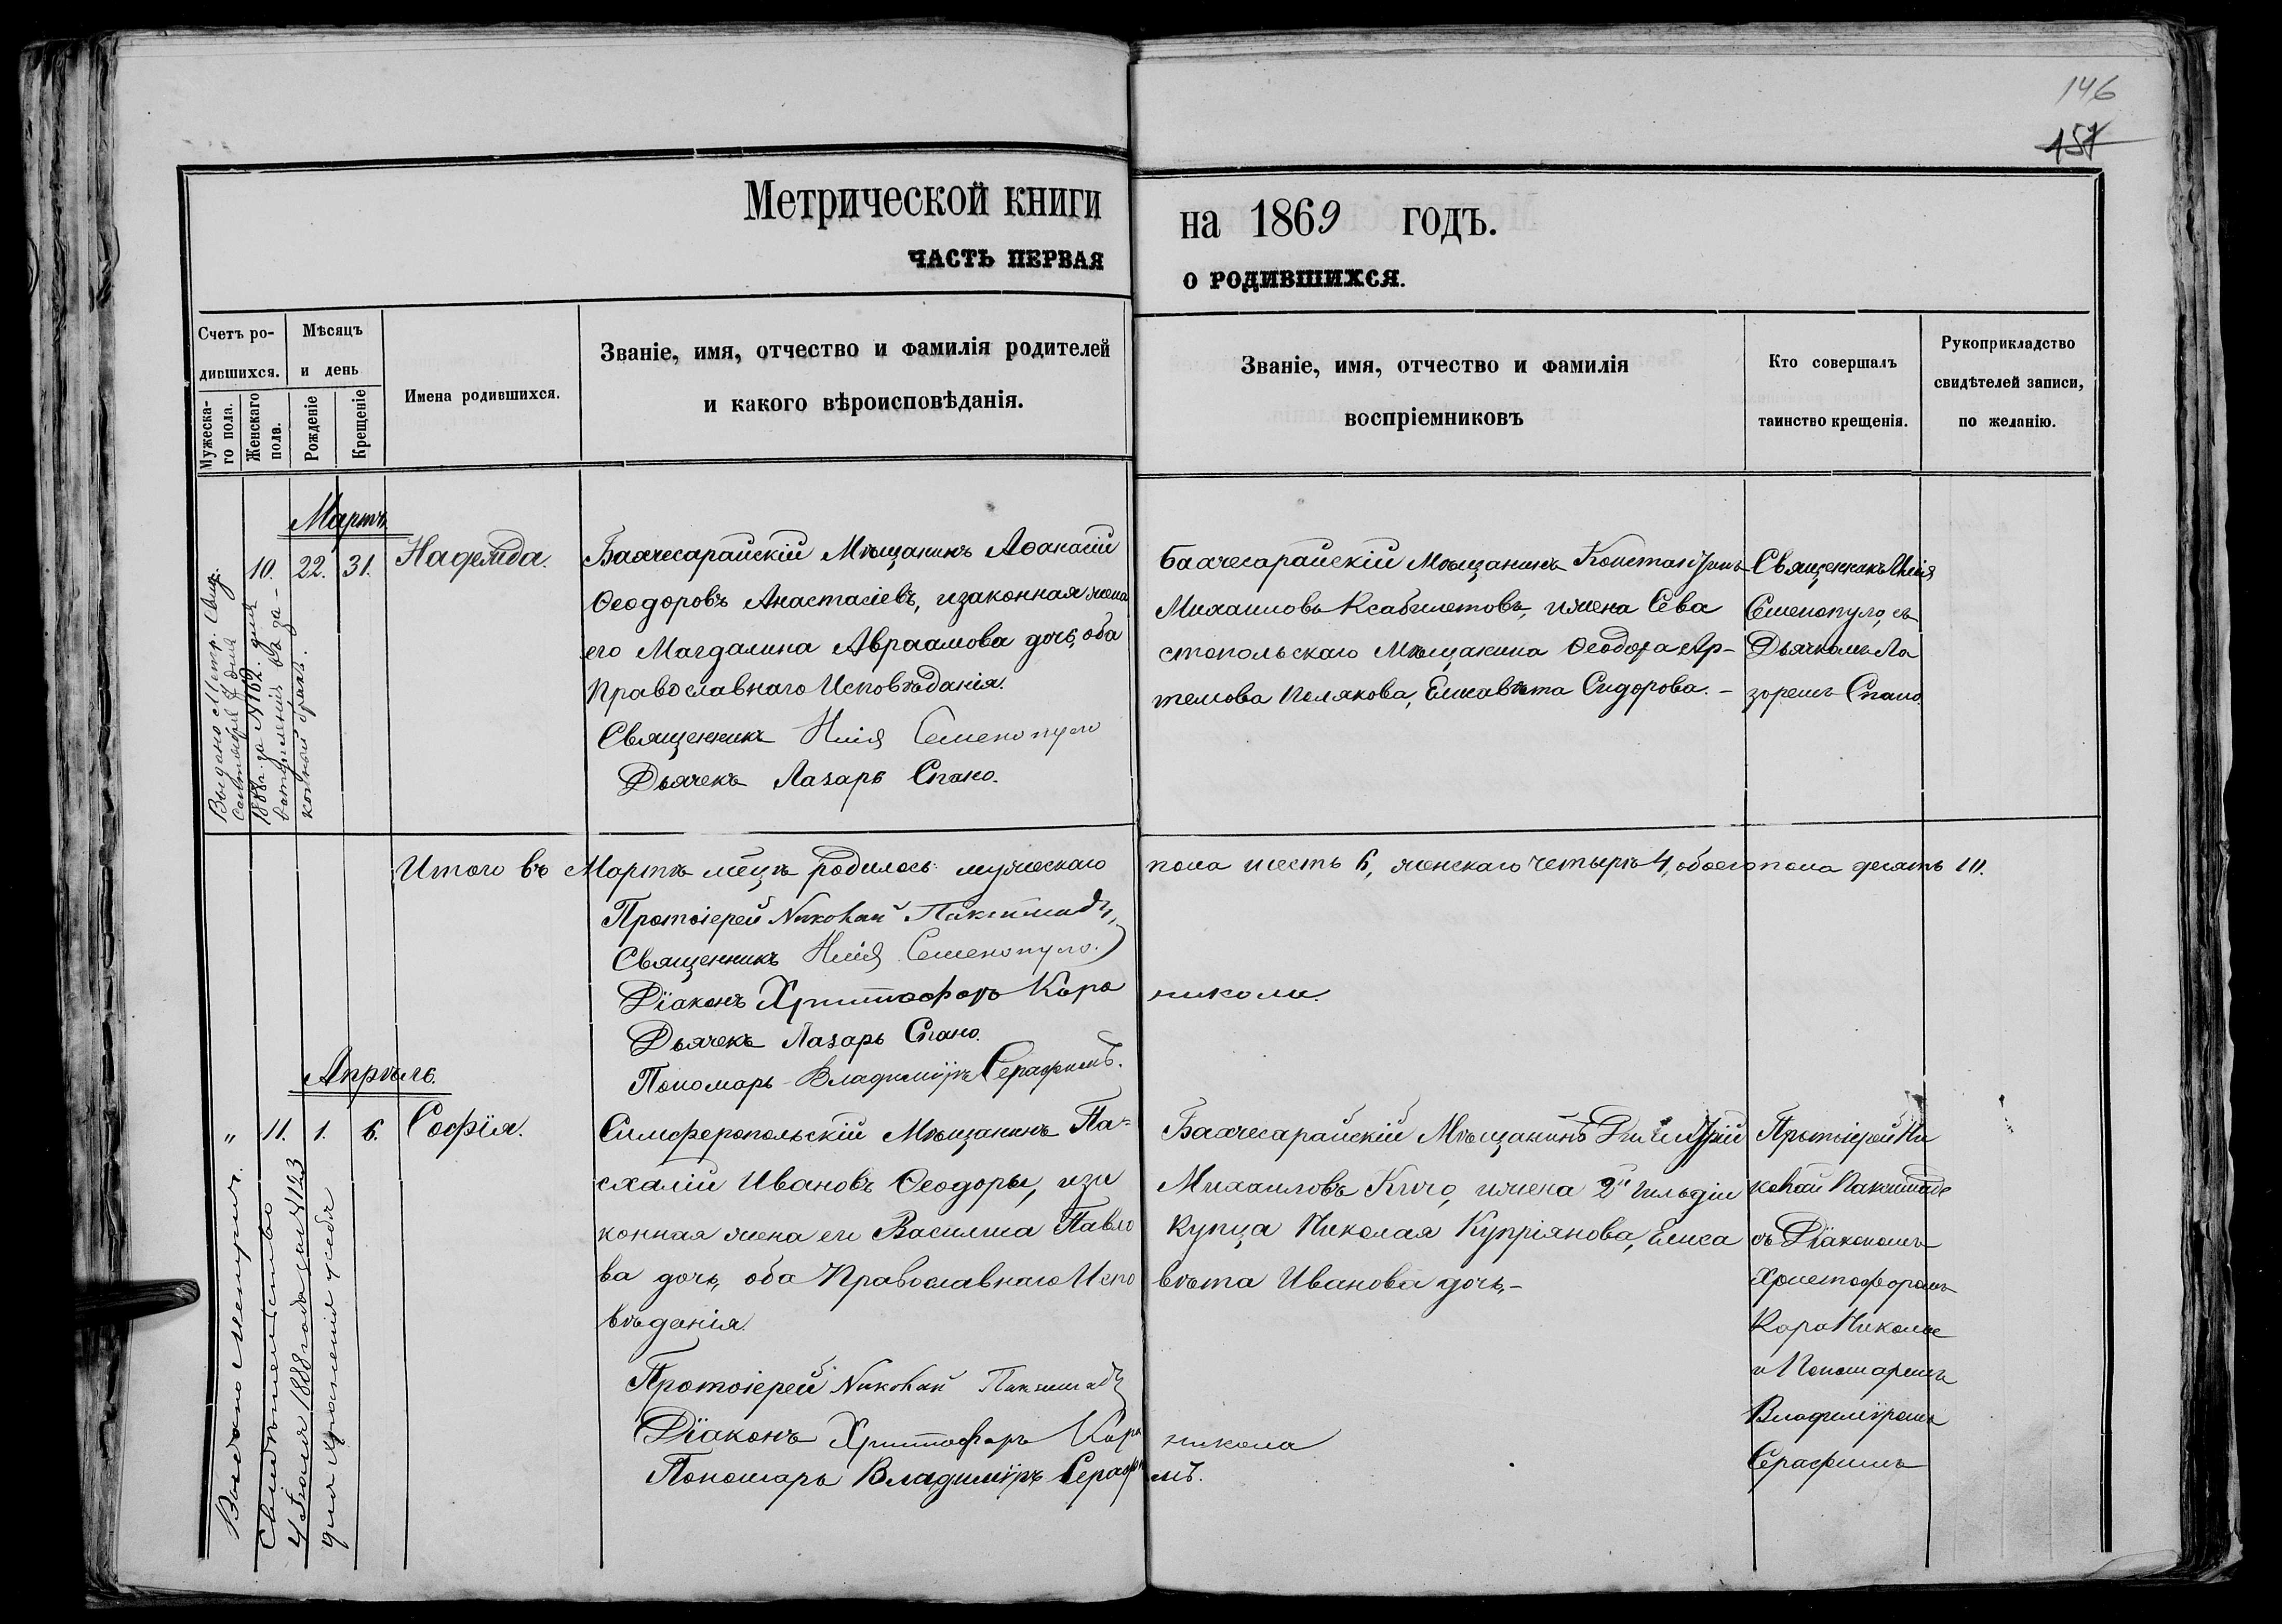 146
157
Метрической книги
на 1869 годъ.
ЧАСТЬ ПЕРВАЯ
О РОДИВШИХСЯ.
Счетъ ро-
дившихся.
Мужеска-
го пола.
Женскаго
пола.
Мѣсяцъ
и день
Рожденіе
Крещеніе
Имена родившихся.
Званіе, имя, отчество и фамилія родителей
и какого вѣроисповѣданія.
Званіе, имя, отчество и фамилія
воспріемниковъ
Кто совершалъ
таинство крещенія.
Рукоприкладство
свидѣтелей записи,
по желанію.
Мартъ
10. 22. 31. Надежда.
Выдано Метр. Свид.
Сентября 7 дня
1888 г. за №162. для
вступленія въ за-
конный бракъ.
Бахчесарайскій Мѣщанинъ Аѳанасій
Ѳеодоровъ Анастасіевъ, и законная жена
его Магдалина Авраамова дочь, оба
Православнаго Исповѣданія.
Священникъ Илія Семенопуло
Дьячекъ Лазарь Спано.
Бахчесарайскій Мѣщанинъ Константинъ
Михаиловъ , и жена Сева
стопольскаго Мѣщанина Ѳеодора Ар-
темова Полякова, Елисавѣта Сидорова. -
Священникъ Илія
Семенопуло, съ
Дьячкомъ Ла
заремъ Спано.
Итого въ Мартѣ мѣцѣ родилось: мужескаго пола шесть 6, женскаго четыре 4, обоего пола десять 10.
Протоіерей Николай
Священникъ Илія Семенопуло.
Діаконъ Христофоръ Кара николи.
Дьячекъ Лазарь Спано.
Пономарь Владиміръ Серафимъ.
Апрѣль.
" 11. 1. 6. Софія.
Выдано метрич.
Свидѣтельство
4 1888 года за №123
для храненія у себя
Симферопольскій Мѣщанинъ Па-
схалій Ивановъ Ѳеодоры, и за
конная жена его Василиса Павло
ва дочь, оба Православнаго Испо
вѣданія.
Протоіерей Николай
Діаконъ Христофоръ Кара никола
Пономарь Владиміръ Серафи мъ.
Бахчесарайскій Мѣщанинъ Димитрій
Михаиловъ Кичо, и жена 2й Гильдіи
Купца Николая Купріянова, Елиса
вѣта Иванова дочь,-
Протоіерей Ни
колай
съ Діакономъ
Христофоромъ
Кара Николи
и Пономаремъ
Владиміромъ
Серафимъ